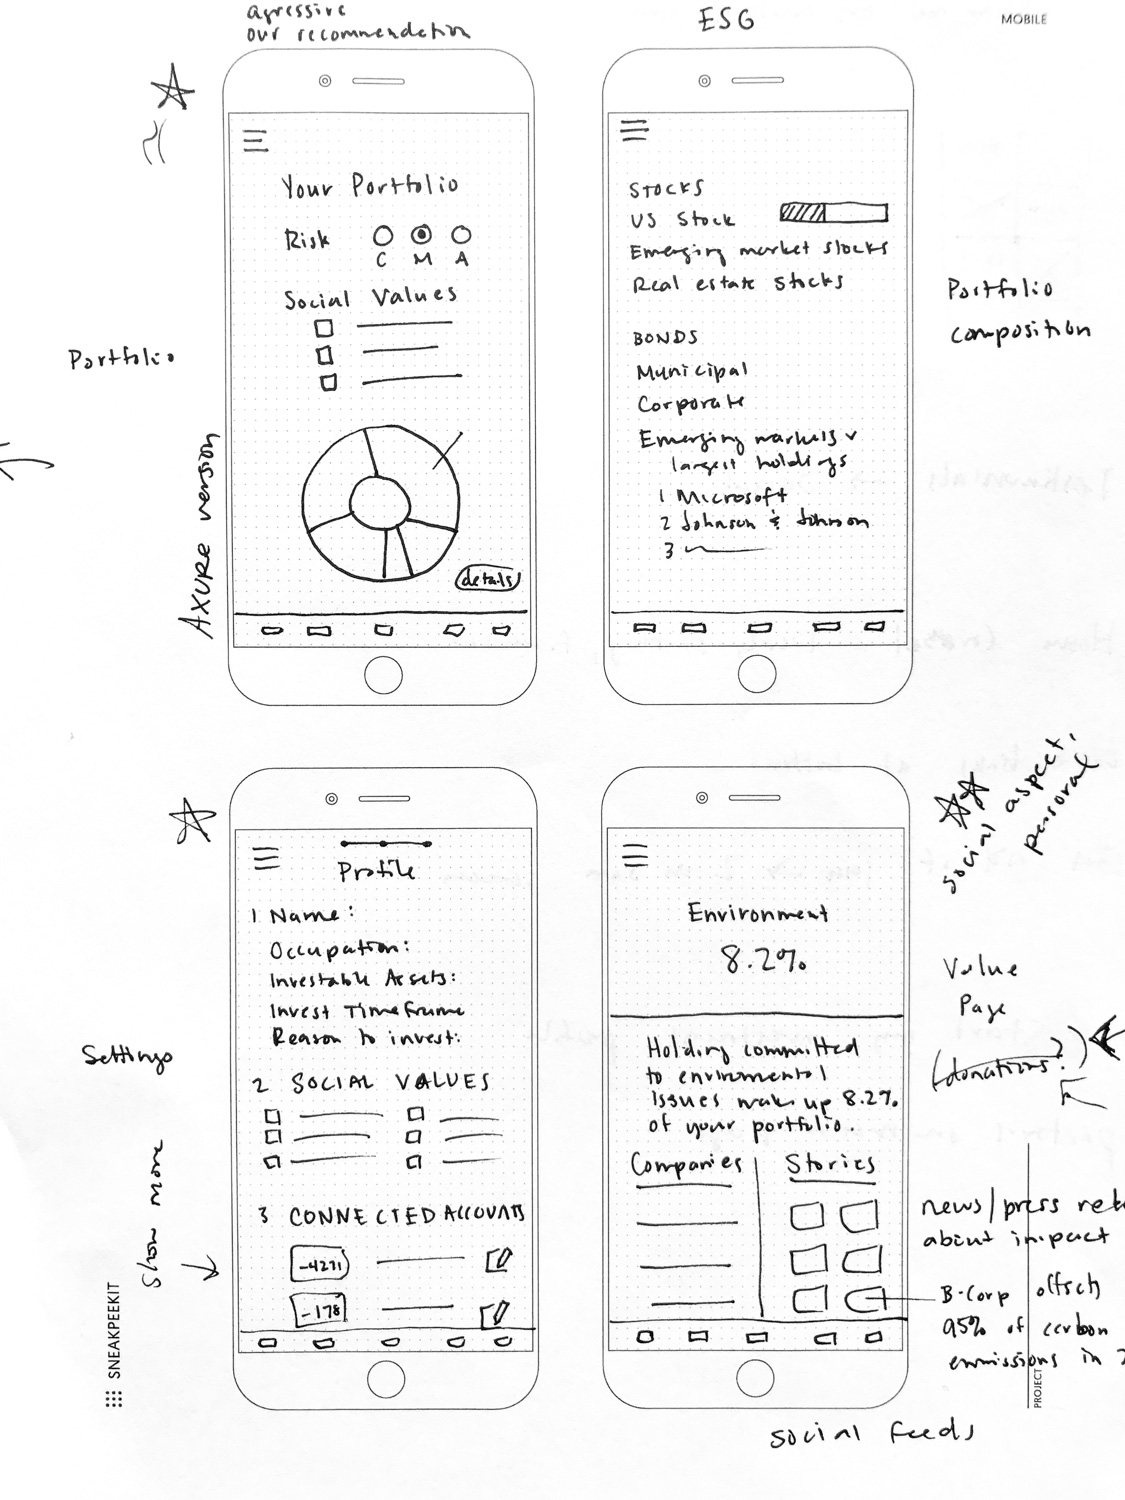 agressive
our recommendation
ESG
MOBILE
Your Portfolio
Risk
C M A
Social Values
details
Portfolio
AXURE version
STOCKS
US Stock
Emerging market stocks
Real estate stocks
BONDS
Municipal
Corporate
Emerging markets
largest holdings
1 Microsoft
2 Johnson & Johnson
3
Portfolio
composition
Profile
1 Name:
Occupation:
Investable Assets:
Invest Timeframe
Reason to invest:
2 SOCIAL VALUES
3 CONNECTED ACCOUNTS
-4271
-178
Settings
Show more
SNEAKPEEKIT
Environment
8.2%
Holding committed
to enviromental
issues make up 8.2%
of your portfolio.
Companies
Stories
social aspect,
personal
Value
Page
(donations?)
news/press
about impact
B-Corp offsets
95% of carbon
emmissions in
PROJECT
social feeds